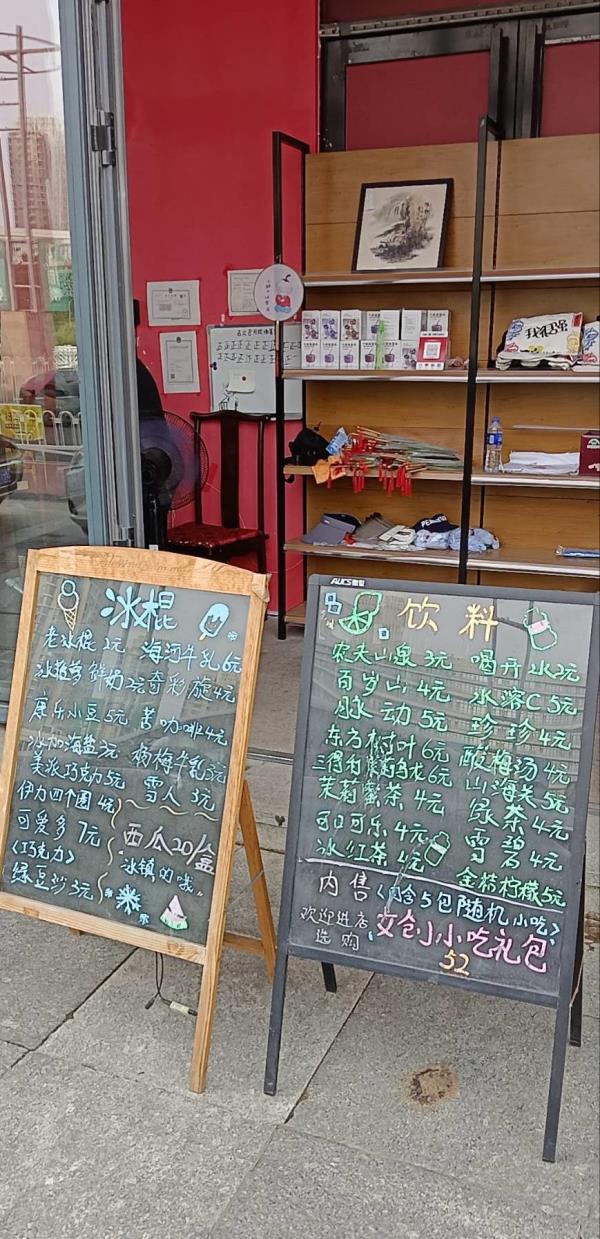 冰棍
老冰棍 2元 海河牛乳 6元
鲜奶 2元 奇彩旋 4元
康乐小豆 5元 苦咖啡 4元
冰加海盐 3元 杨梅牛乳 3元
美派巧克力 5元 雪人 3元
伊力四个圈 4元
可爱多 7元
(巧克力)
绿豆沙 3元
西瓜20/盒
"冰镇的哦"
AUCS
饮料
农夫山泉 3元 喝开水 2元
百岁山 4元 水溶C 5元
脉动 5元 珍珍 4元
东方树叶 6元 酸梅汤 4元
三得利茉莉乌龙 6元 山海关 5元
茉莉蜜茶 4元 绿茶 4元
可口可乐 4元 雪碧 4元
冰红茶 4元 金桔柠檬 5元
内售 (内含5包随机小吃)
欢迎进店
选购
文创小小吃礼包
52